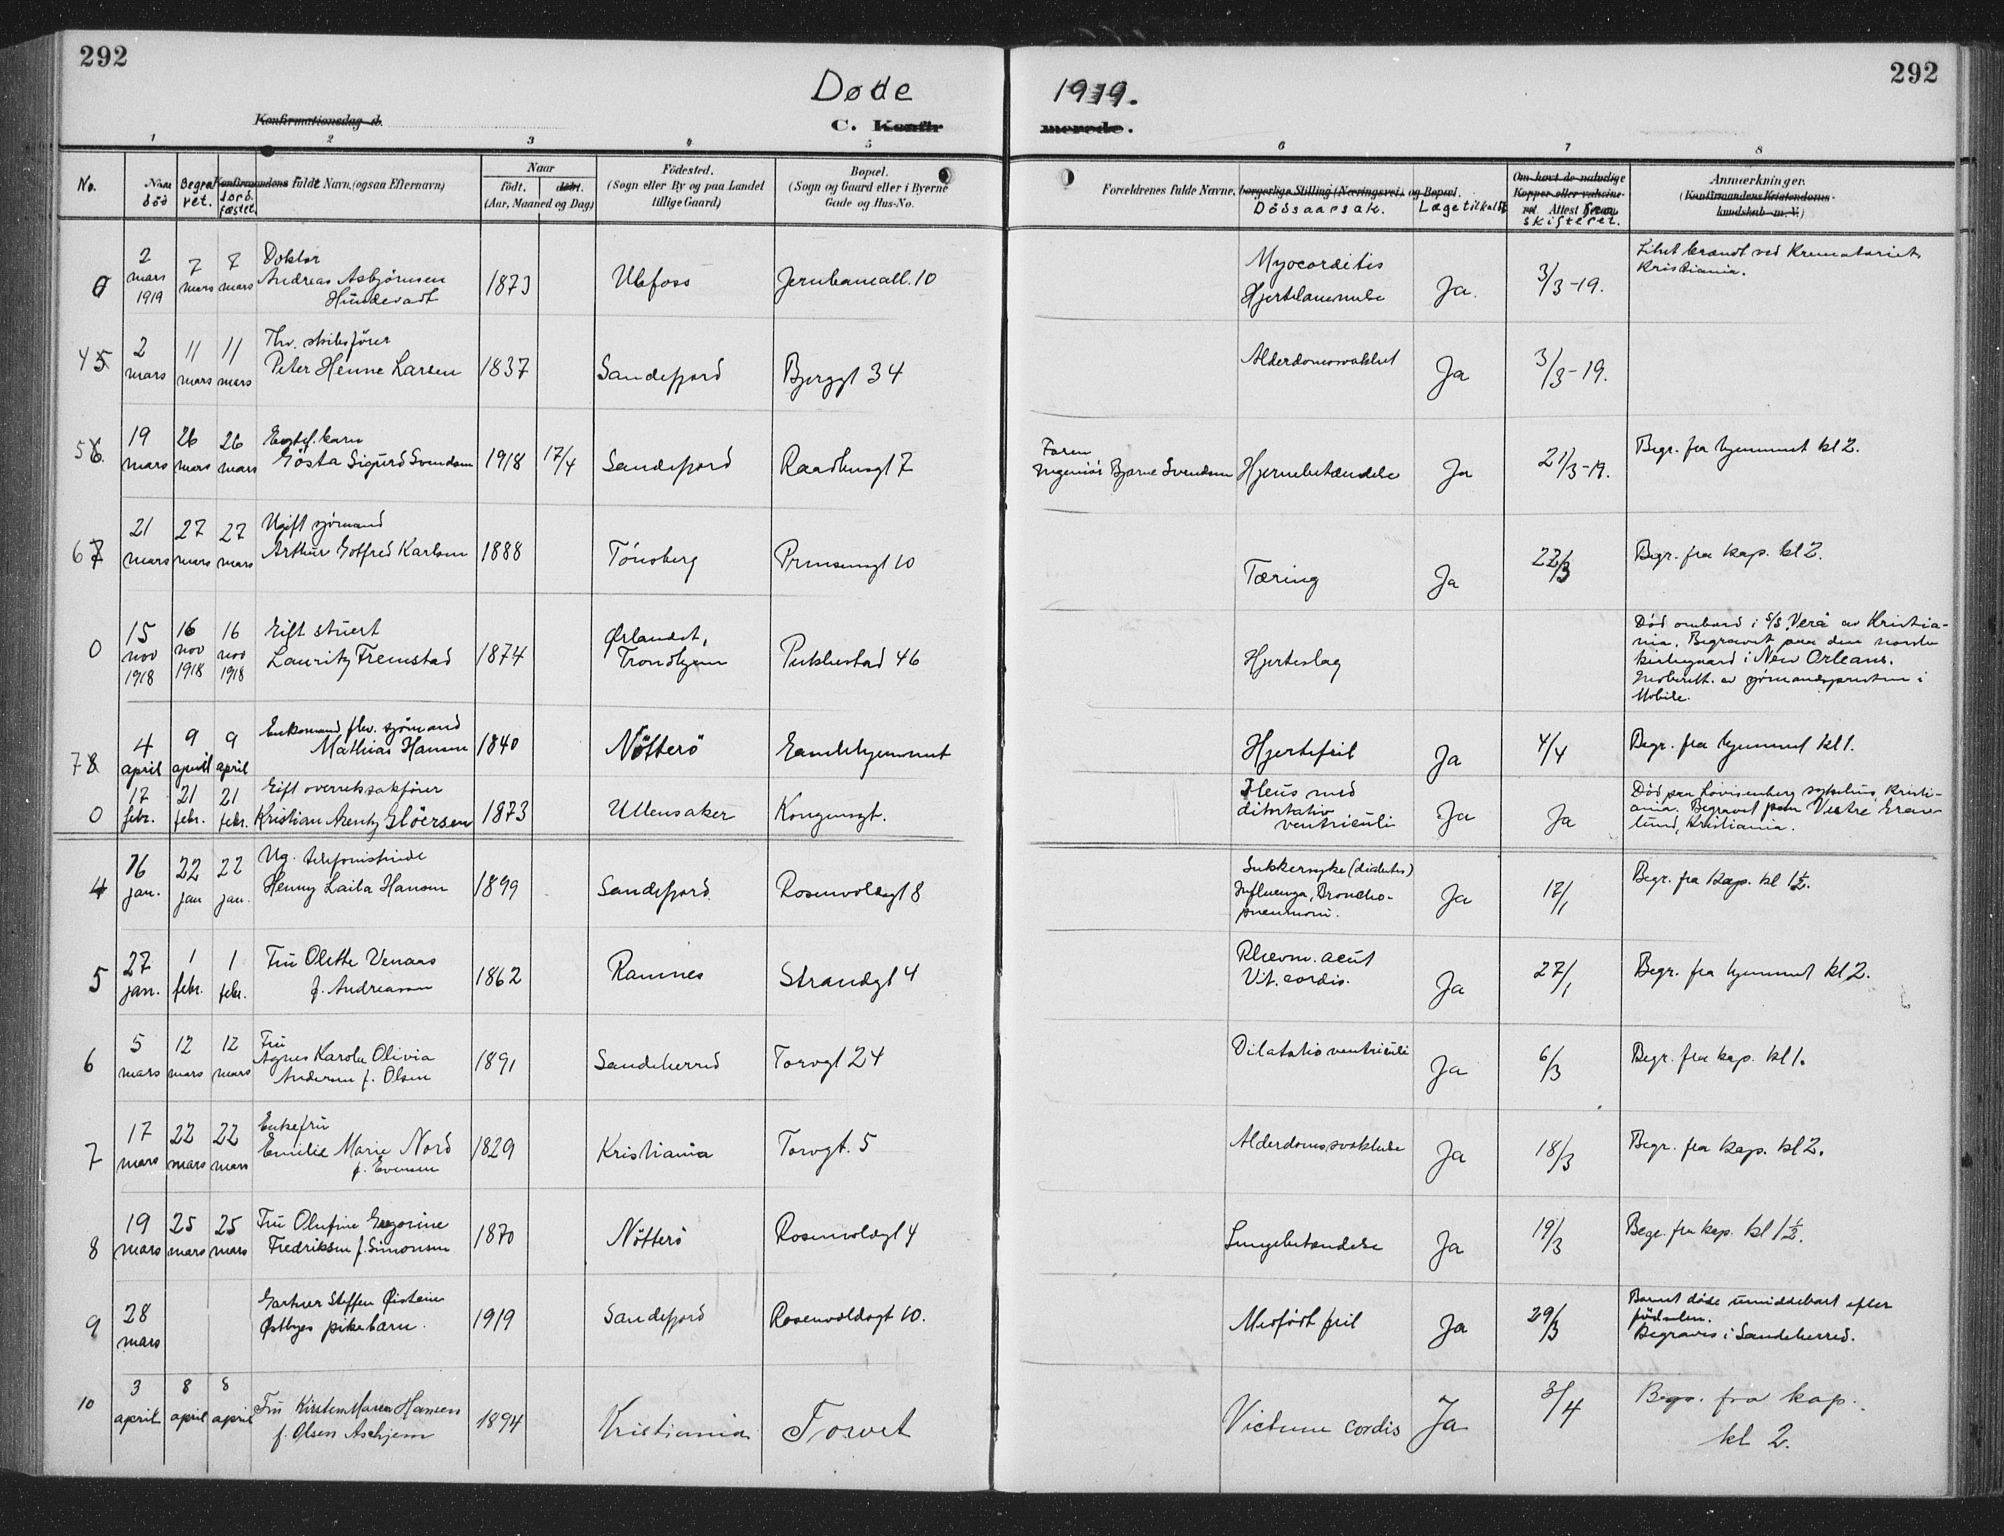 292
292
Døde
1919.
Konfirmationsdag d.
C. Konfirmerede.
1 2 3 4 5 6 7 8
No.
Naar død
Begravet.
Jordfæstet.
Konfirmandens fulde Navn (ogsaa Efternavn)
Naar
født. døbt.
(Aar, Maaned og Dag)
Fødested.
(Sogn eller By og paa Landet tillige Gaard)
Bopæl.
(Sogn og Gaard eller i Byerne Gade og Hus-No.
Forældrenes fulde Navne, borgerlige Stilling (Næringsvei) og Bopæl.
Dødsaarsak.
Læge tilkaldt
Om havt de naturlige Kopper eller vaksineret. Attest
fra skifteret.
Anmærkninger.
(Konfirmandens Kristendomskundskab m. V.)
0 2 mars 1919 7 mars 7 mars Doktor
Andreas Asbjørnsen
Hundevadt 1873 Ulefoss Jernbaneall. 10 Myocarditis
Hjertelammelse Ja. 3/3-19. Liket brændt ved Krematoriet
Kristiania.
45 2 mars 11 mars 11 mars Fhv. skibsfører
Peter Henne Larsen 1837 Sandefjord Bjerggt 34 Alderdomssvakhet Ja 3/3-19.
56. 19 mars 26 mars 26 mars Egtef. barn
Gösta Sigurd Svendsen 1918 17/4 Sandefjord Raadhusgt 7 Faren
Ingeniør Bjarne Svendsen Hjernebetændelse Ja 21/3-19. Begr. fra hjemmet kl 2.
67 21 mars 27 mars 27 mars Ugift sjømand
Arthur Gotfred Karlsen 1888 Tönsberg Prinsensgt 10 Tæring Ja 22/3 Begr. fra kap. kl 2.
0 15 nov 1918 16 nov 1918 16 nov 1918 Gift stuert
Lauritz Fremstad 1874 Ørlandet,
Trondhjem Pukkestad 46 Hjerteslag Død ombord i S/S Vera av Kristia-
nia. Begravet paa den norske
kirkegaard i New Orleans.
Indberett. av sjømandspresten i
Mobile.
78 4 april 9 april 9 april Enkemand fhv. sjømand
Mathias Hansen 1840 Nötterö Gamlehjemmet Hjertefeil Ja 4/4 Begr. fra hjemmet kl 1.
0 17 febr. 21 febr. 21 febr. Gift overretssakfører
Kristian Arentz Glöersen 1873 Ullensaker Kongensgt. Ileus med
ditortatio
ventriculi Ja Ja Død paa Lovisenberg sykehus, Kristi-
ania. Begravet paa Vestre Grav-
lund, Kristiania.
4 16 jan. 22 jan 22 jan. Ug. telefonistinde
Henny Laila Hansen 1899 Sandefjord. Rosenvoldsgt 8 Sukkersyke (diabetes)
Influenza, Broncho-
pneumoni. Ja 17/1 Begr. fra kap. kl 1½.
5 27 jan. 1 febr. 1 febr. Fru Olette Venaas
f. Andreassen 1862 Ramnes Strandgt 4 Rhevm. acut
Vit. cordis. Ja 27/1 Begr. fra hjemmet kl 2.
6 5 mars 12 mars 12 mars Fru
Agnes Karola Olivia
Andersen f. Olsen 1891 Sandeherred Torvgt 24 Dilatatio ventriculi Ja 6/3 Begr. fra kap. kl 1.
7 17 mars 22 mars 22 mars Enkefru
Emilie Marie Nord
f. Evensen 1829 Kristiania Torvgt. 5 Alderdomssvakhet Ja 18/3 Begr. fra kap. kl 2.
8 19 mars 25 mars 25 mars Fru Olufine Gregorine
Fredriksen f. Simonsen 1870 Nötterö Rosenvoldsgt 4 Lungebetændelse Ja 19/3 Begr. fra kap. kl 1½.
9 28 mars Gartner Steffen Øistein
Østbyes pikebarn. 1919 Sandefjord Rosenvoldsgt 10. Medfødt feil Ja 29/3 Barnet døde umiddelbart efter
fødselen.
Begraves i Sandeherred.
10 3 april 8 april 8 april Fru Kirsten Maren Hansen
f. Olsen Aschjem 1894 Kristiania Torvet Victium cordis Ja 3/4 Begr. fra kap.
kl 2.